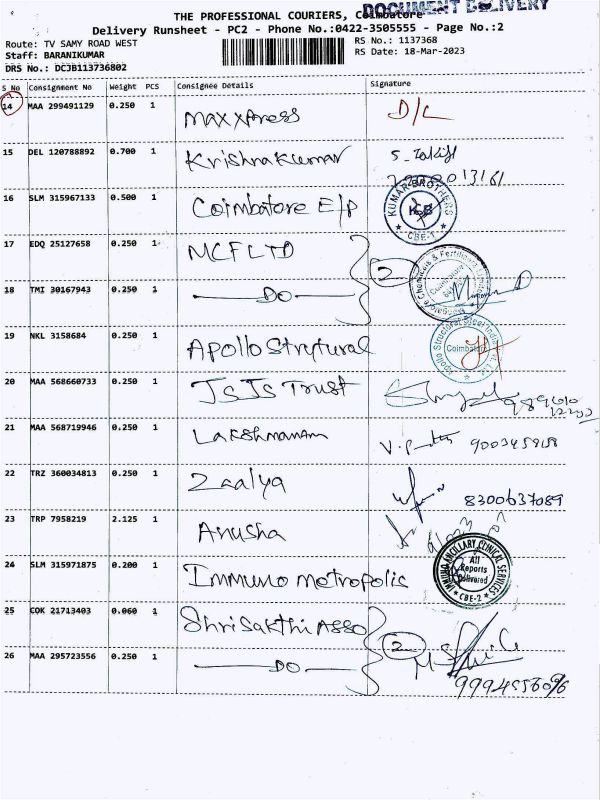 DOCUMENT DELIVERY
THE PROFESSIONAL COURIERS, Coimbatore
Delivery Runsheet - PC2 - Phone No.:0422-3505555 - Page No.:2
Route: TV SAMY ROAD WEST
Staff: BARANIKUMAR
DRS No.: DCJB113736802
RS No.: 1137368
RS Date: 18-Mar-2023
S No Consignment No Weight PCS Consignee Details Signature
14 MAA 299491129 0.250 1 Maxxpress D/C
15 DEL 120788892 0.700 1 Krishnakumar
16 SLM 315967133 0.500 1 Coimbatore E/P KUMAR BROTHERS KB CBE-1
17 EDQ 25127658 0.250 1 MCF LTD 2
18 TMI 30167943 0.250 1 DO Coimbatore
19 NKL 3158684 0.250 1 Apollo Strctural Apollo Structural Steel Coimbatore
20 MAA 568660733 0.250 1 JSJS Trust
21 MAA 568719946 0.250 1 Lakshmanam
22 TRZ 360034813 0.250 1 Zaalya 8300637089
23 TRP 7958219 2.125 1 Anusha
24 SLM 315971875 0.200 1 Immuno metropolis IMMUNO ANCILLARY CLINICAL SERVICES All Reports Delivered CBE-2
25 COK 21713403 0.060 1 Shri Sakthi Asso 2
26 MAA 295723556 0.250 1 DO